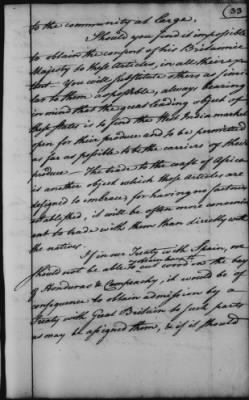 33
to the community at large.
Should you find it impossible
to obtain the consent of his Britannic
Majesty to these Articles, in all their ex-
tent - You will substitute others as simi-
lar to them as possible, always bearing
in mind that the great leading object of
these States is to found the West India market
open for their produce and to be permitted
as far as possible to be the carriers of their
produce - The trade to the coast of Africa
is another object which those Articles are
designed to embrace; for having no factories
established, it will be often more conveni-
ent to trade with them than directly with
the natives.
If in our Treaty with Spain, we
should not be able to cut wood on the bay
of Honduras & Campeachy, it would be of
consequence to obtain admission by a
Treaty with Great Britain to such parts
as may be assigned them, & if it should